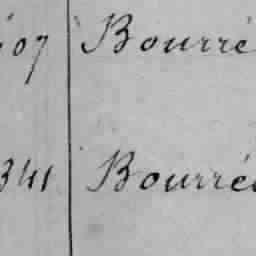 07 Bourré
341 Bourré